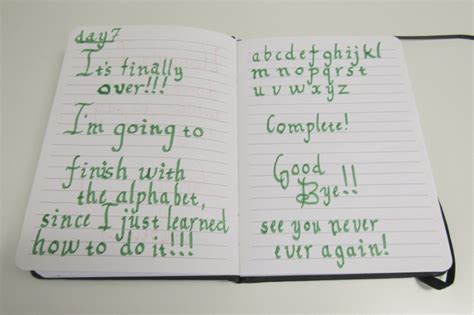 day 7
It's finally
over!!!
I'm going to
finish with
the alphabet,
since I just learned
how to do it!!!
abcdefghijkl
mnopqrst
uvwxyz
Complete!
Good
Bye!!
see you never
ever again!